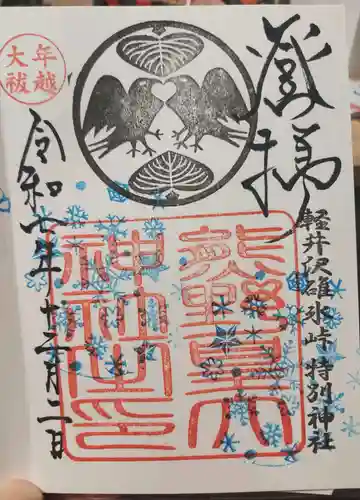 登拝
軽井沢碓氷峠 特別神社
熊野皇大
神社之印
年越
大祓
令和七年十二月二日